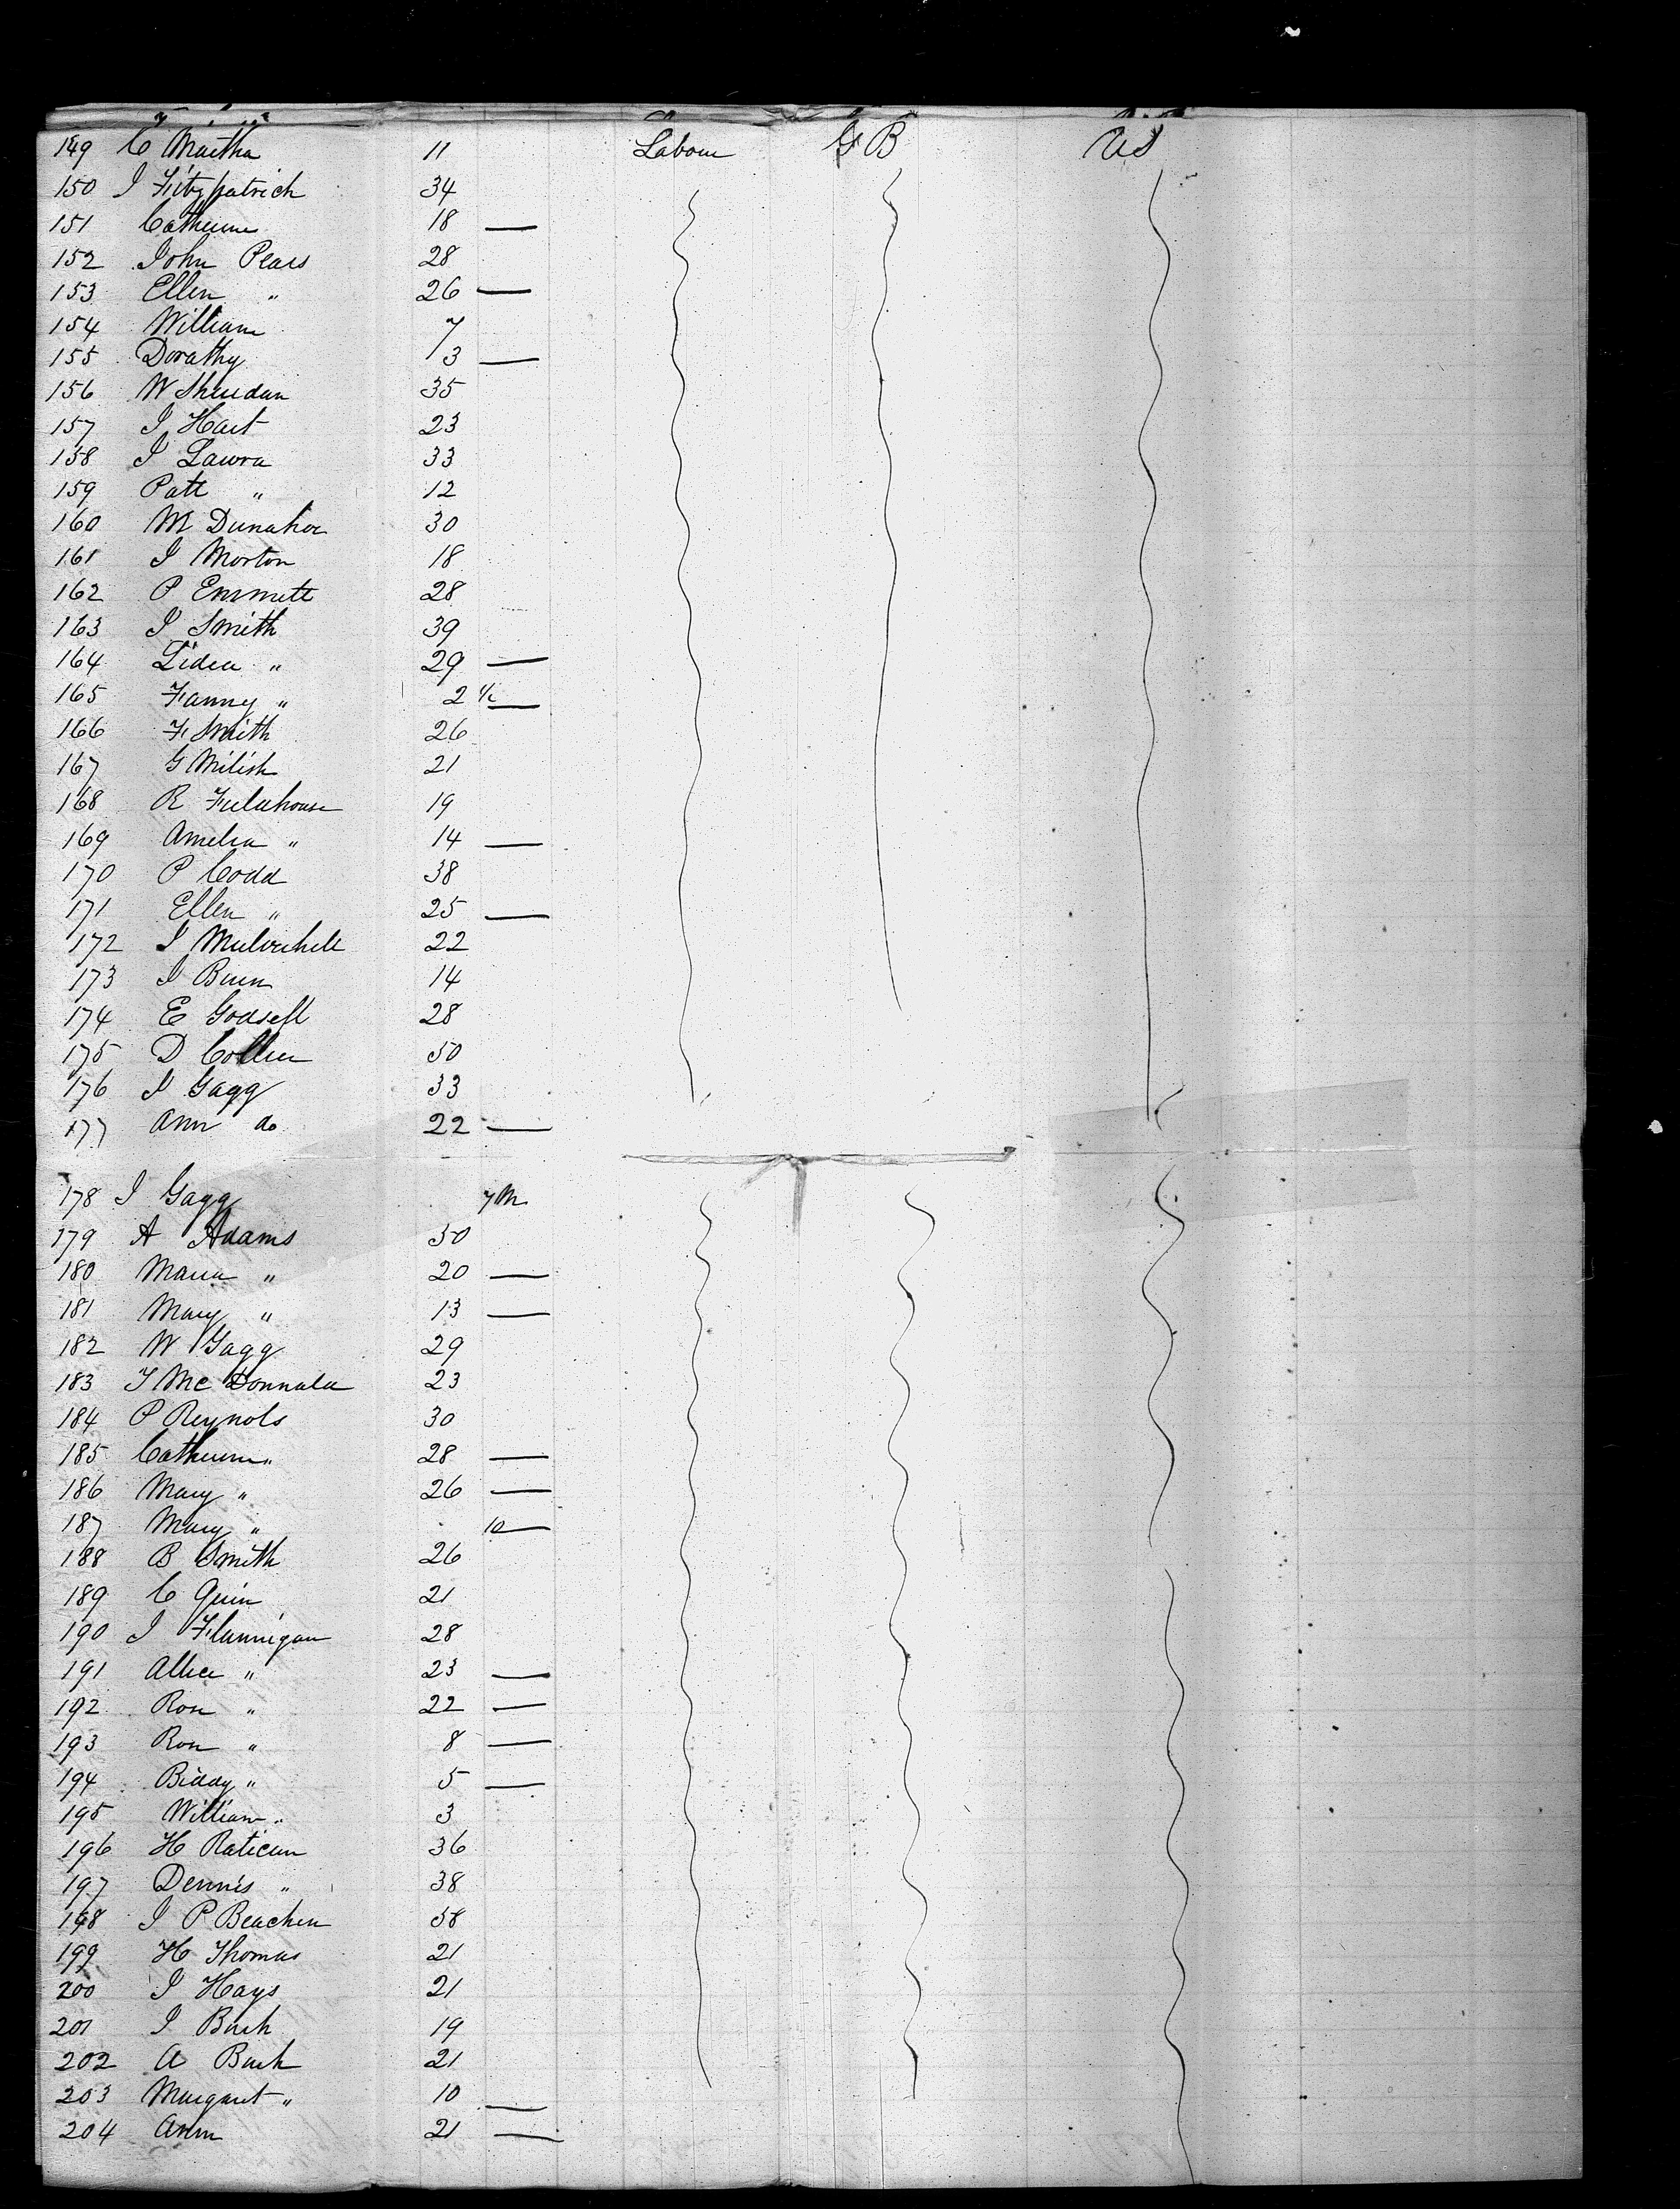 149 C Martha 11 Labour G B U S
150 I Fitzpatrick 34
151 Catherine 18 —
152 John Pears 28
153 Ellen " 26 —
154 William 7
155 Dorathy 3 —
156 W Sheridan 35
157 I Hart 23
158 I Lawra 33
159 Patt " 12
160 M Dunahoe 30
161 I Morton 18
162 P Emmett 28
163 I Smith 39
164 Lidia " 29 —
165 Fanny " 2 1/2 —
166 F Smith 26
167 G Milish 21
168 R 19
169 Amelia " 14 —
170 P Codd 38
171 Ellen " 25 —
172 I Mulvihill 22
173 I Burn 14
174 E Godsell 28
175 D Collier 50
176 I Gagg 33
177 Ann do 22 —
178 I Gagg 7 M
179 A Adams 50
180 Maria " 20 —
181 Mary " 13 —
182 W Gagg 29
183 T Mc Donnald 23
184 P Reynols 30
185 Catherine " 28 —
186 Mary " 26 —
187 Mary " 10 —
188 B Smith 26
189 C Quin 21
190 I Flannigan 28
191 Allice " 23 —
192 Rose " 22 —
193 Rose " 8 —
194 Biddy " 5 —
195 William " 3
196 H Ratican 36
197 Dennis " 38
198 I P Beachen 38
199 H Thomas 21
200 I Hays 21
201 I Bush 19
202 A Bush 21
203 Margaret " 10 —
204 Ann 21 —